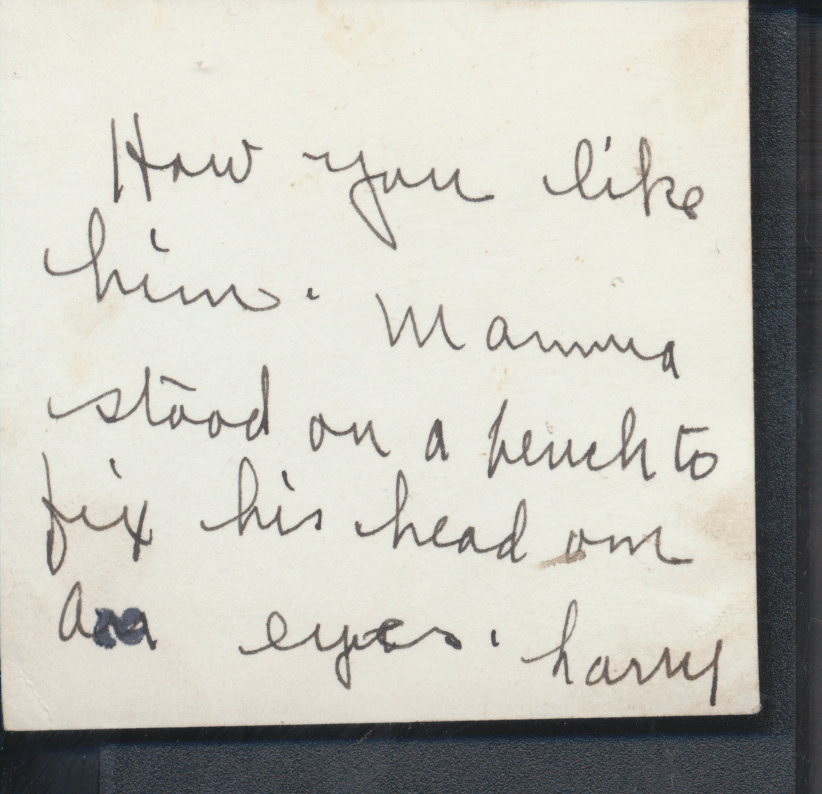 How you like
him. Mamma
stood on a bench to
fix his head on
eyes. harry